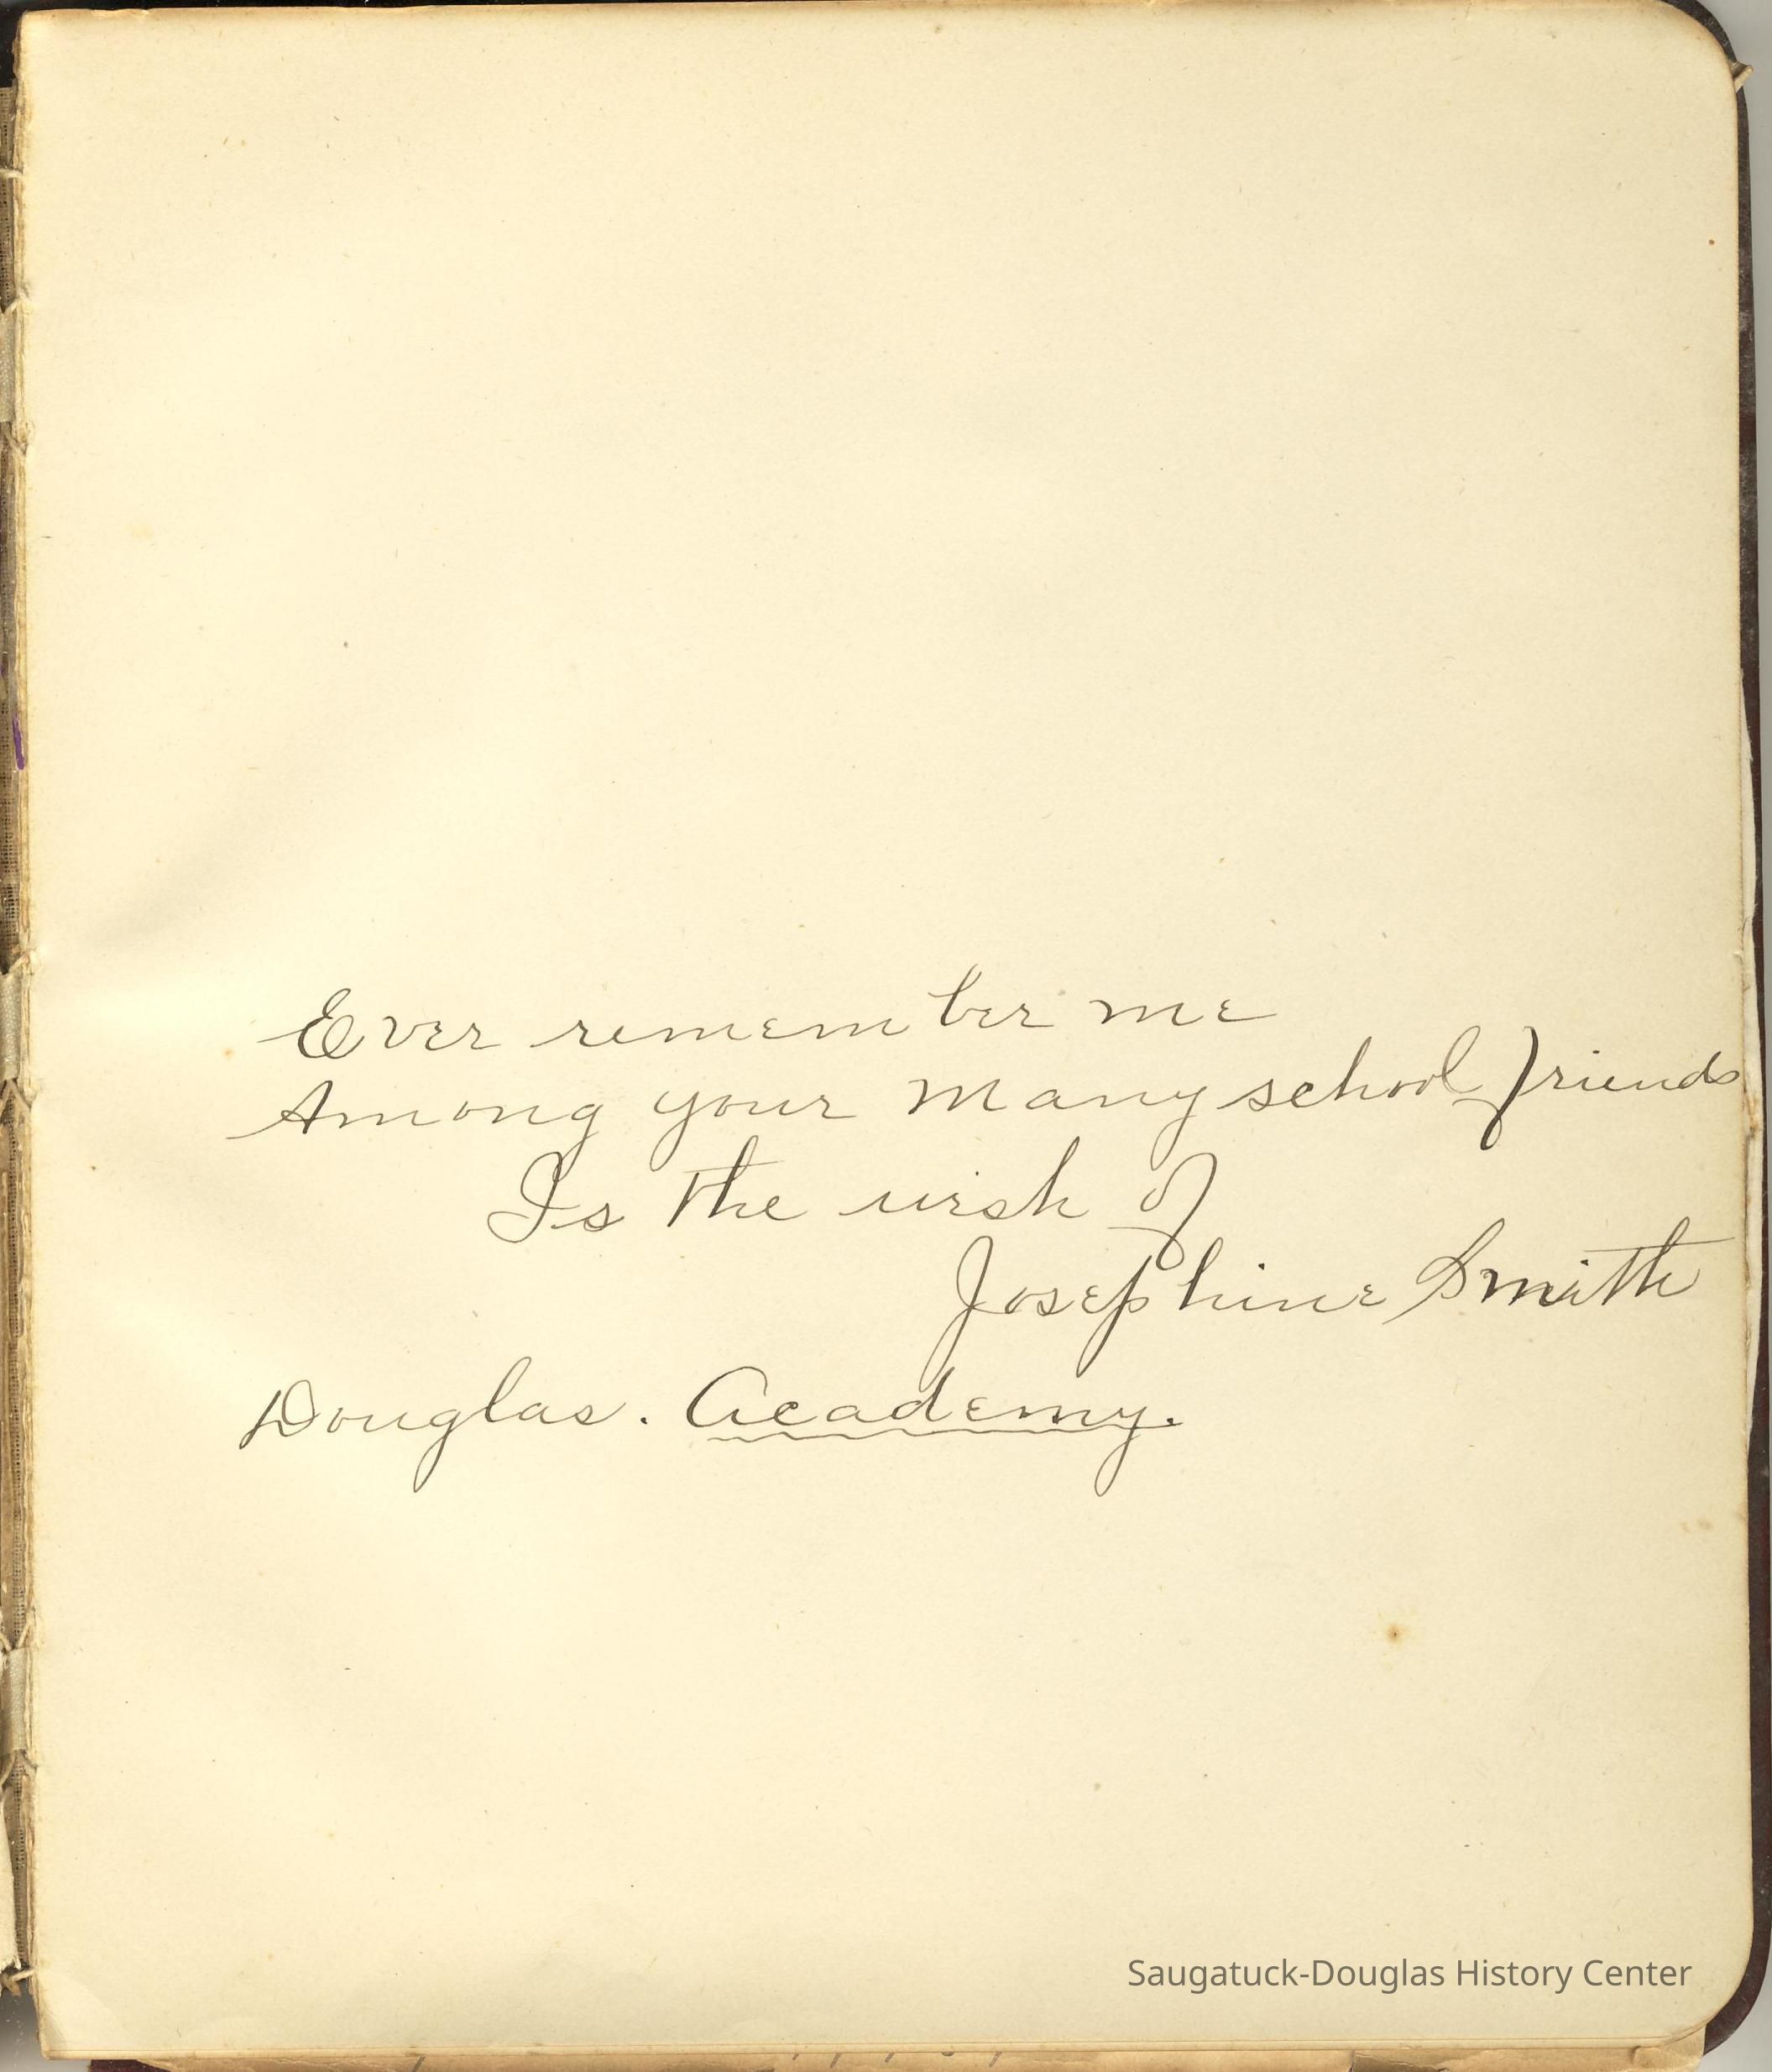 Ever remember me
Among your many school friends
Is the wish of
Josephine Smith
Douglas. Academy.
Saugatuck-Douglas History Center